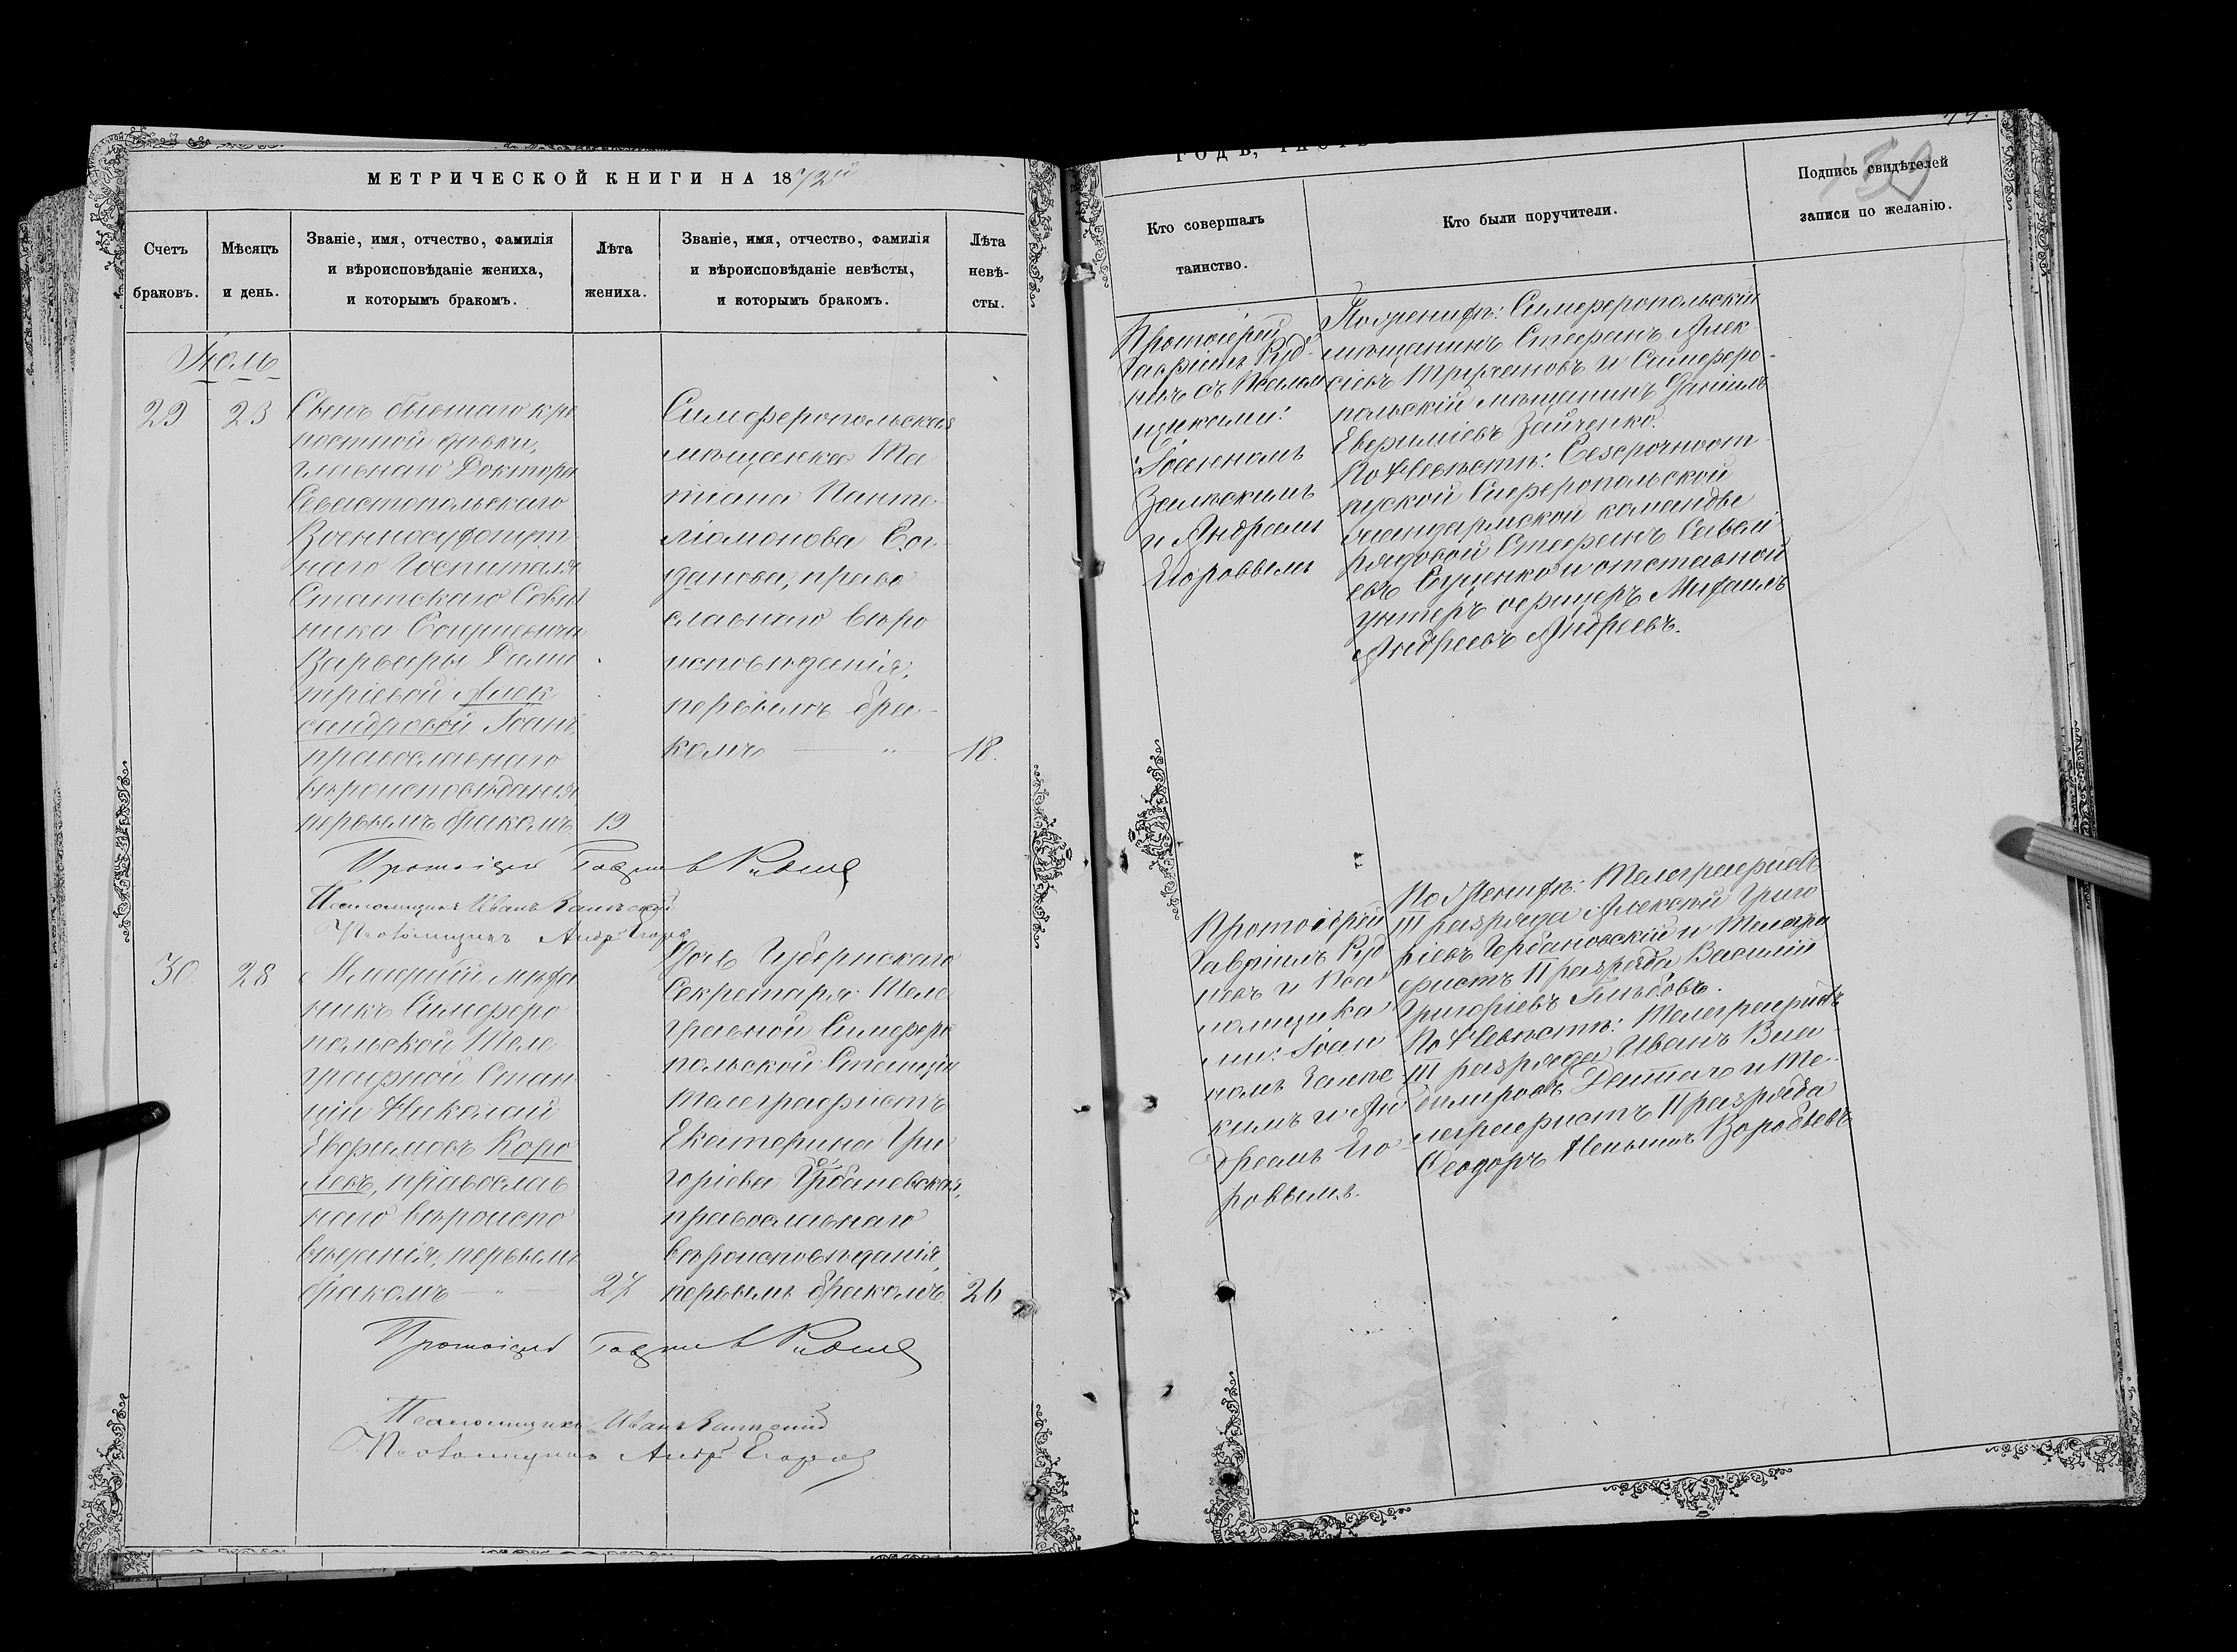 МЕТРИЧЕСКОЙ КНИГИ НА 1872й
Счетъ
браковъ.
Мѣсяцъ
и день.
Званіе, имя, отчество, фамилія
и вѣроисповѣданіе жениха,
и которымъ бракомъ.
Лѣта
жениха.
Званіе, имя, отчество, фамилія
и вѣроисповѣданіе невѣсты,
и которымъ бракомъ.
Лѣта
невѣ-
сты.
Іюль
29
23
Сынъ бывшаго крѣ
постной дѣвки,
главнаго Доктора
Севастопольскаго
Военносухопут
наго Госпиталя
Статскаго Совѣт
ника
Варвары Дими
тріевой Алек
сандровой Іоаннъ
православнаго
вѣроисповѣданія
первымъ бракомъ
19
Симферопольская
мѣщанка Та
тіана Панте
лiмонова Бог
данова, право
славнаго вѣро
исповѣданія,
первымъ бра-
комъ
18.
Протоіерей Гавріилъ
Псаломщикъ Иванъ
Псаломщикъ Андр Егоров
30.
28
Младшій меха
никъ Симферо
польской Теле
графной Стан
ціи Николай
Евфимовъ Коро
левъ, православ
наго вѣроиспо
вѣданія, первымъ
бракомъ
27
Дочь Губернскаго
Секретаря Теле
графной Симферо
польской Станціи
телеграфистъ
Екатерина Гри
горіева Урбановская,
православнаго
вѣроисповѣданія,
первымъ бракомъ
26
Протоіерей Гавріилъ
Псаломщикъ Иванъ
Псаломщикъ Андр Егоров
Кто совершалъ
таинство.
Кто были поручители.
Подпись свидѣтелей
записи по желанію.
Протоіерей
Гавріилъ Руд
невъ съ Псалом
щиками:
Іоанномъ
и Андреемъ
Егоровымъ
По женихѣ: Симферопольскій
мѣщанинъ Стефанъ Алек
сіевъ и Симферо-
польскій мѣщанинъ Даніилъ
Евфиміевъ Зайченко.
По Невѣстѣ: Безсрочноот
пускной Симферопольской
жандармской команды
рядовой Стефанъ Савелі
евъ и отставной
унтеръ офицеръ Михаилъ
Андреевъ Андреевъ.
Протоіерей
Гавріилъ Руд
невъ и Пса
ломщика
ми: Іоан
номъ
кимъ и Ан
дреемъ Его
ровымъ.
По Женихѣ: Телеграфистъ
III разряда Алексѣй Григо
ріевъ Урбановскій и Телегра
фистъ II разряда Василій
Григоріевъ Глѣбовъ.
По Невѣстѣ: Телеграфистъ
III разряда Иванъ Вла
димировъ и Те-
леграфистъ II разряда
Ѳеодоръ Воробьевъ